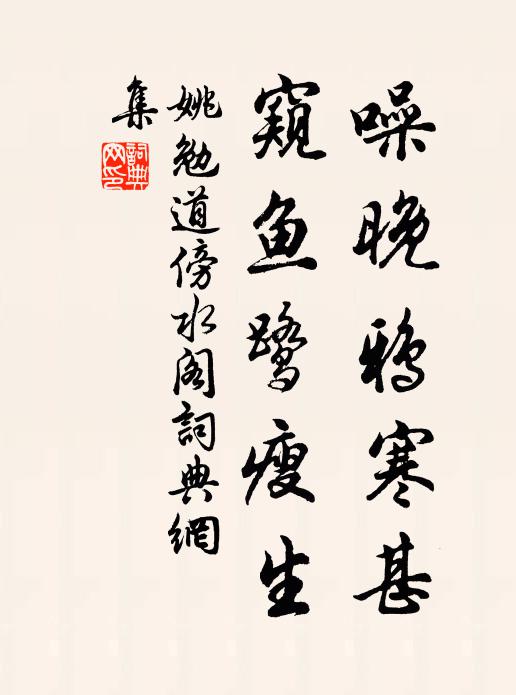 噪晚鴉寒甚
窺鱼鹭瘦生
姚勉道傍水阁詞典網
集
詞典
网印